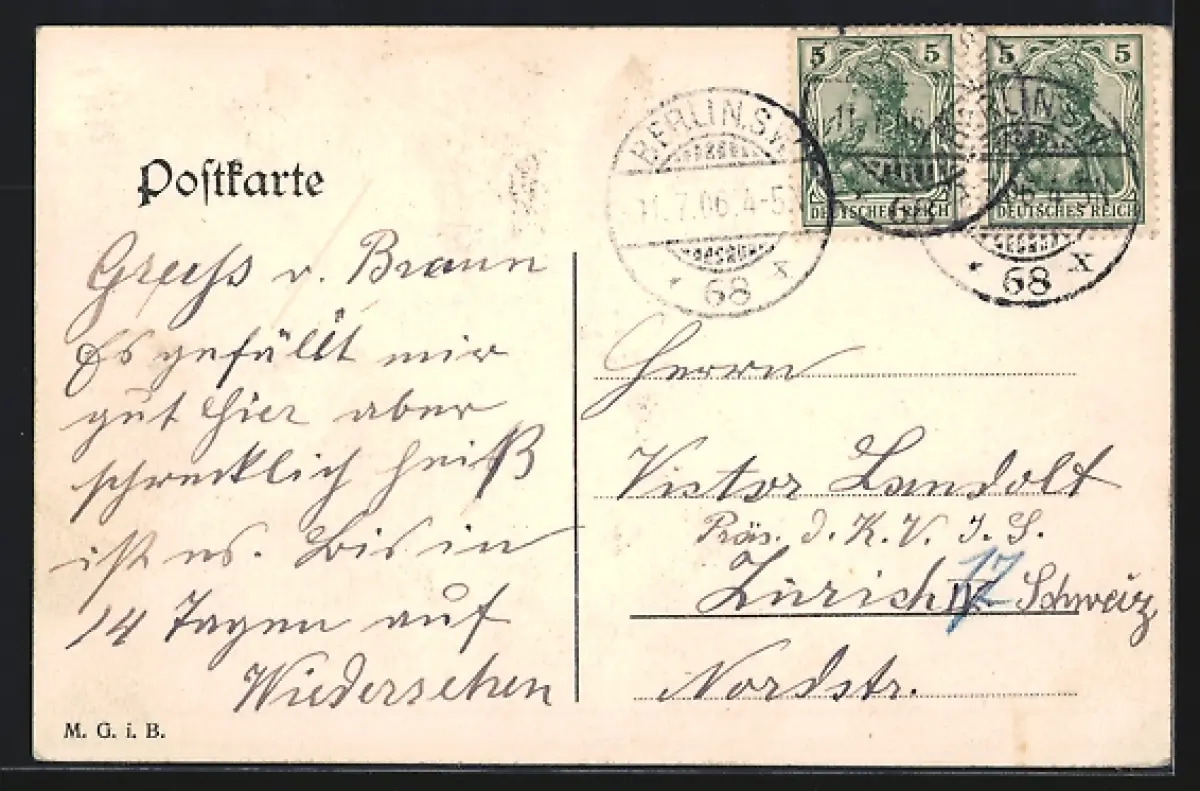 Postkarte
5 5
DEUTSCHES REICH
5 5
DEUTSCHES REICH
BERLIN.S.W.
11.7.06.4-5
* 68 x
BERLIN.S.W.
06.4-5
* 68 x
68
Gruss v. Braun
Es gefällt mir
gut hier aber
schrecklich heiß
ist es. Bis in
14 Tagen auf
Wiedersehen
Herrn
Victor Landolt
Präs. d. K. V. I. S.
Zürich IV Schweiz
17
Nordstr.
M. G. i. B.